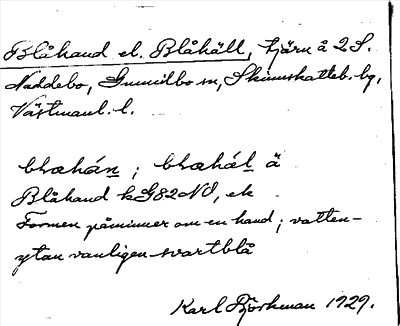 Blåhand el. Blåhäll, tjärn å 2 S.
Naddebo, Gunnilbo sn, Skinnskatteb. bg,
Västmanl. l.
blåhán ; blåhál å
Blåhand kG82NO, ek
Formen påminner om en hand ; vatten-
ytan vanligen svartblå
Karl Björkman 1929.